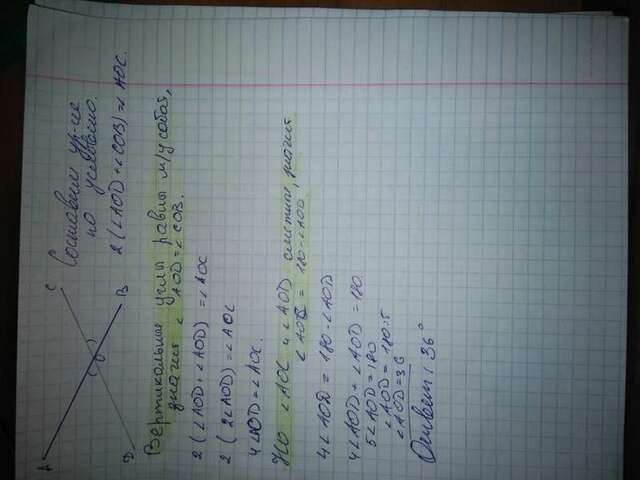 A
C
O
D
B
Составим ур-ие
по условию.
2(∠AOD+∠COB)=∠AOC.
Вертикальные углы равны м/у собой,
значит ∠AOD=∠COB.
2(∠AOD+∠AOD)=∠AOC
2(2∠AOD)=∠AOC
4∠AOD=∠AOC.
Но ∠AOC и ∠AOD смежные, значит
∠AOC = 180-∠AOD.
4∠AOD = 180-∠AOD
4∠AOD+∠AOD=180.
5∠AOD=180
∠AOD=180:5
∠AOD=36
Ответ: 36°